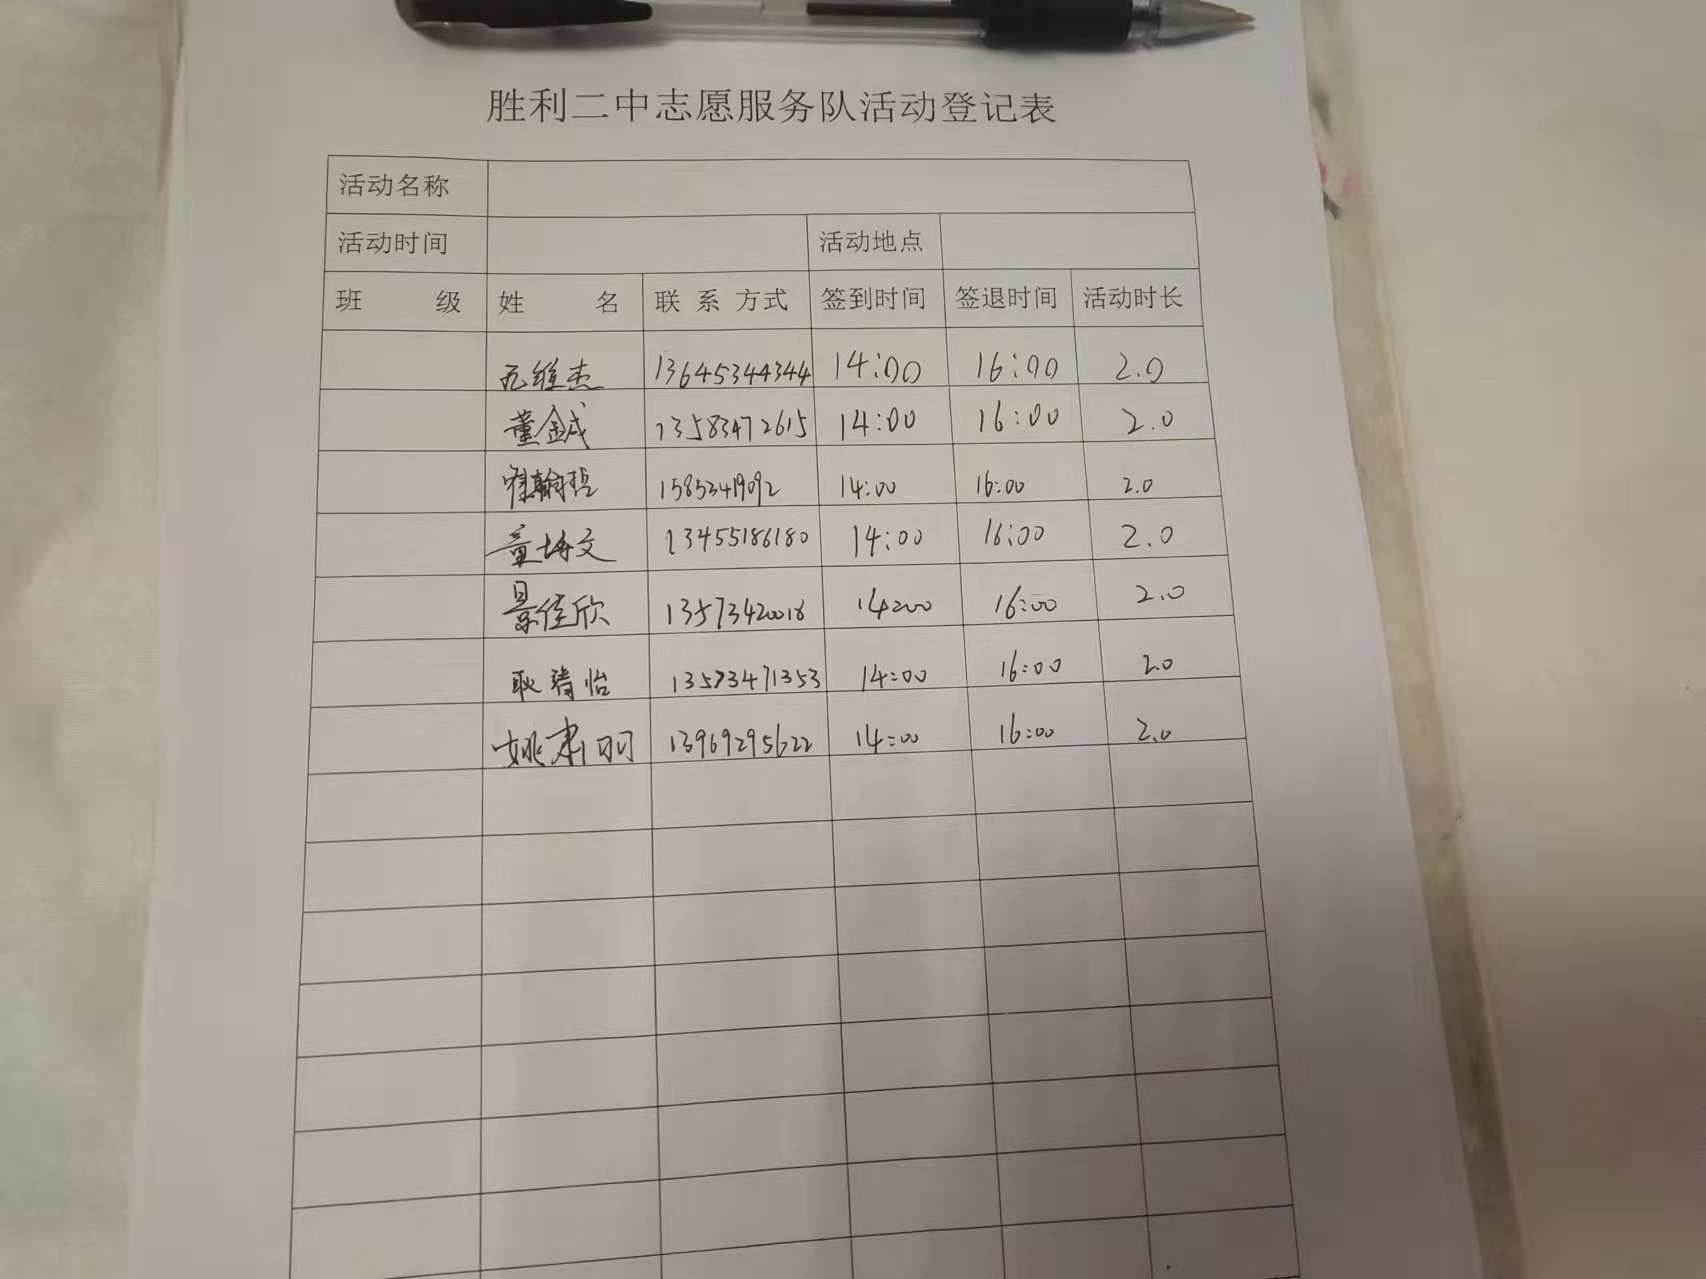 胜利二中志愿服务队活动登记表
活动名称
活动时间 活动地点
班 级 姓 名 联 系 方式 签到时间 签退时间 活动时长
13645344344 14:00 16:00 2.0
董金成 13583472615 14:00 16:00 2.0
翰哲 15853419092 14:00 16:00 2.0
童博文 13455186180 14:00 16:00 2.0
景佳欣 13573420018 14:00 16:00 2.0
耿清怡 13573471353 14:00 16:00 2.0
姚肃羽 13969295622 14:00 16:00 2.0